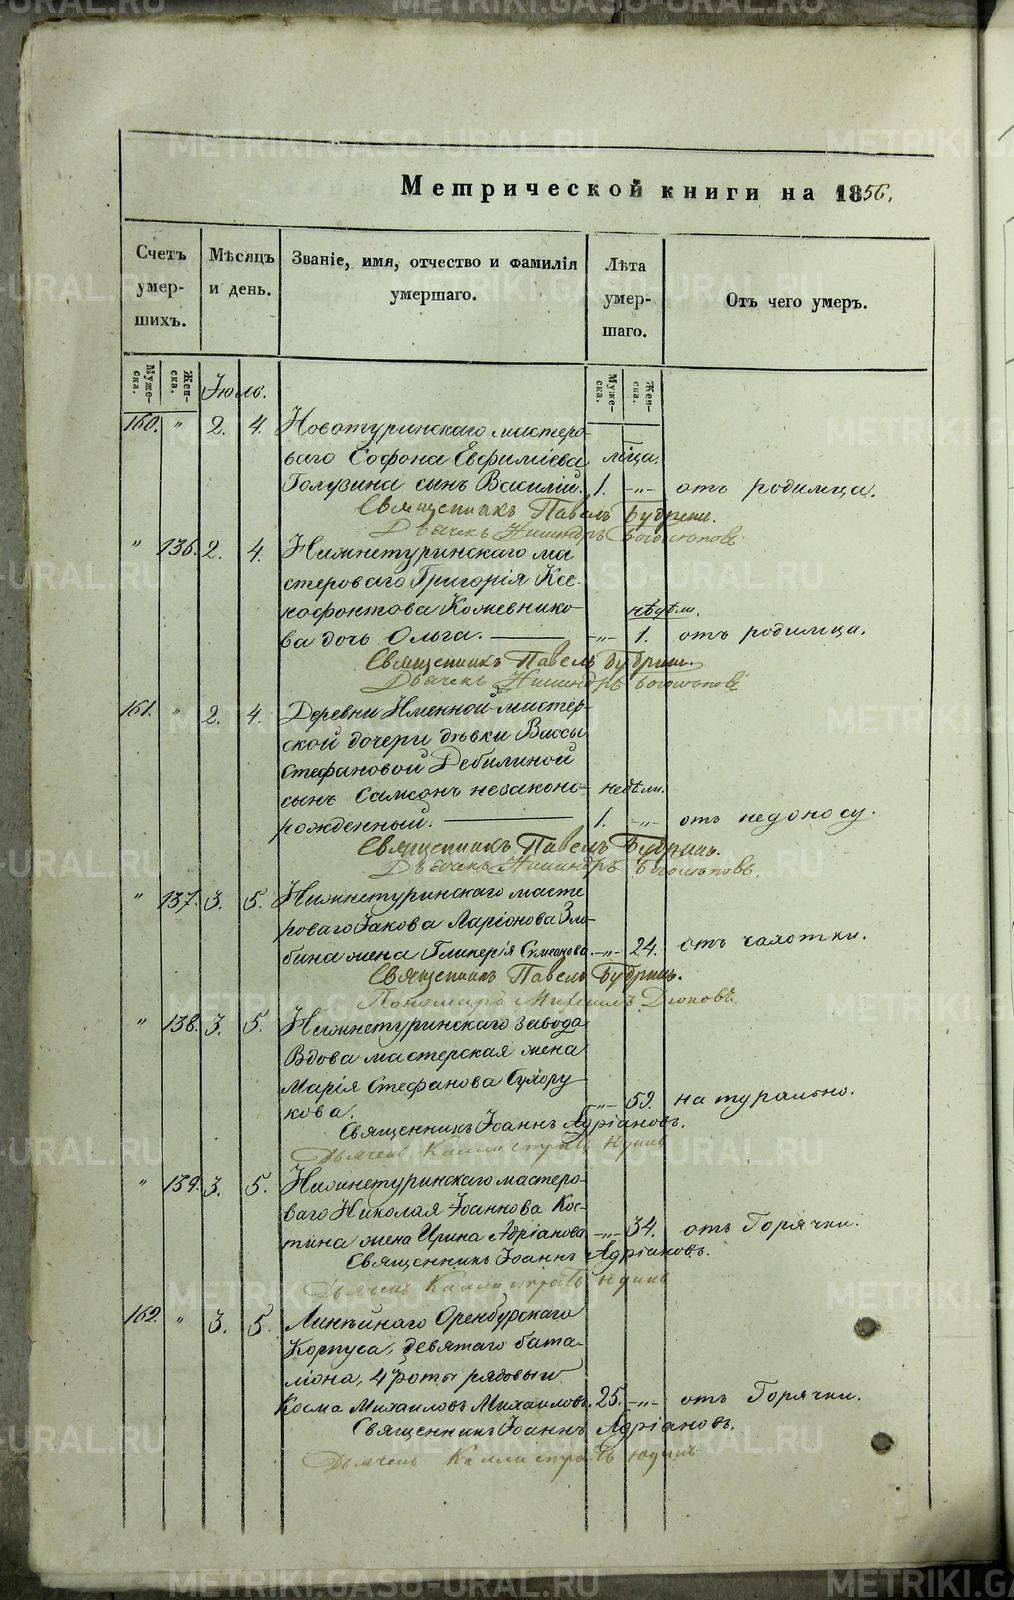 Метрической книги на 1856.
Счетъ умершихъ.
Мѣсяцъ и день.
Званіе, имя, отчество и фамилія умершаго.
Лѣта умершаго.
Отъ чего умеръ.
Мужеска.
Женска.
Мужеска.
Женска.
Іюль.
160. " 2. 4. Новотуринскаго мастеро-
ваго Софона Евфиміева мѣсца.
Голузина сынъ Василій. 1. -"- отъ родимца.
Священникъ Павелъ Бубринъ.
Дьячекъ
" 136. 2. 4. Нижнетуринскаго ма
стероваго Григорія Ксе-
нофонтова Кожевнико- недѣли.
ва дочь Ольга. -"- 1. отъ родимца.
Священникъ Павелъ Бубринъ.
Дьячекъ
161. " 2. 4. Деревни Именной мастер-
ской дочери дѣвки Вассы
Стефановой Дебилиной
сынъ Самсонъ незаконо- недѣли.
рожденный. 1. -"- отъ недоносу.
Священникъ Павелъ Бубринъ.
Дьячекъ
" 137. 3. 5. Нижнетуринскаго масте
роваго Іакова Ларіонова Зло-
бина жена Гликерія Симеонова -"- 24. отъ чахотки.
Священникъ Павелъ Бубринъ.
Пономарь Михаилъ
" 138. 3. 5. Нижнетуринскаго завода
Вдова мастерская жена
Марія Стефанова Сухору-
кова. -"- 59. натурально.
Священникъ Іоаннъ Адріановъ.
Дьячекъ Каллистратъ Юдинъ
" 139. 3. 5. Нижнетуринскаго мастеро-
ваго Николая Іоаннова Кос-
тина жена Ирина Адріанова -"- 34. отъ Горячки.
Священникъ Іоаннъ Адріановъ.
Дьячекъ Каллистратъ Юдинъ
162. " 3. 5. Линѣйнаго Оренбурскаго
Корпуса, девятаго бата-
ліона, 4й роты рядовый
Косма Михаиловъ Михаиловъ. 25. -"- отъ Горячки.
Священникъ Іоаннъ Адріановъ.
Дьячекъ Каллистратъ Юдинъ
METRIKI.GASO-URAL.RU